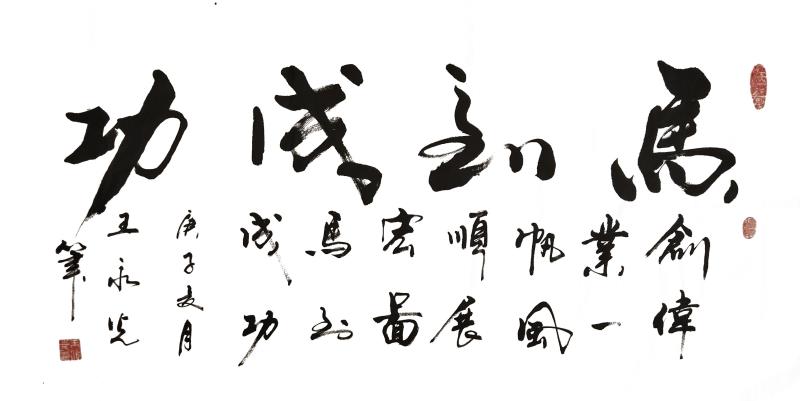 馬到成功
創偉
業一
帆風
順展
宏圖
馬到
成功
庚子友月
王永光
筆